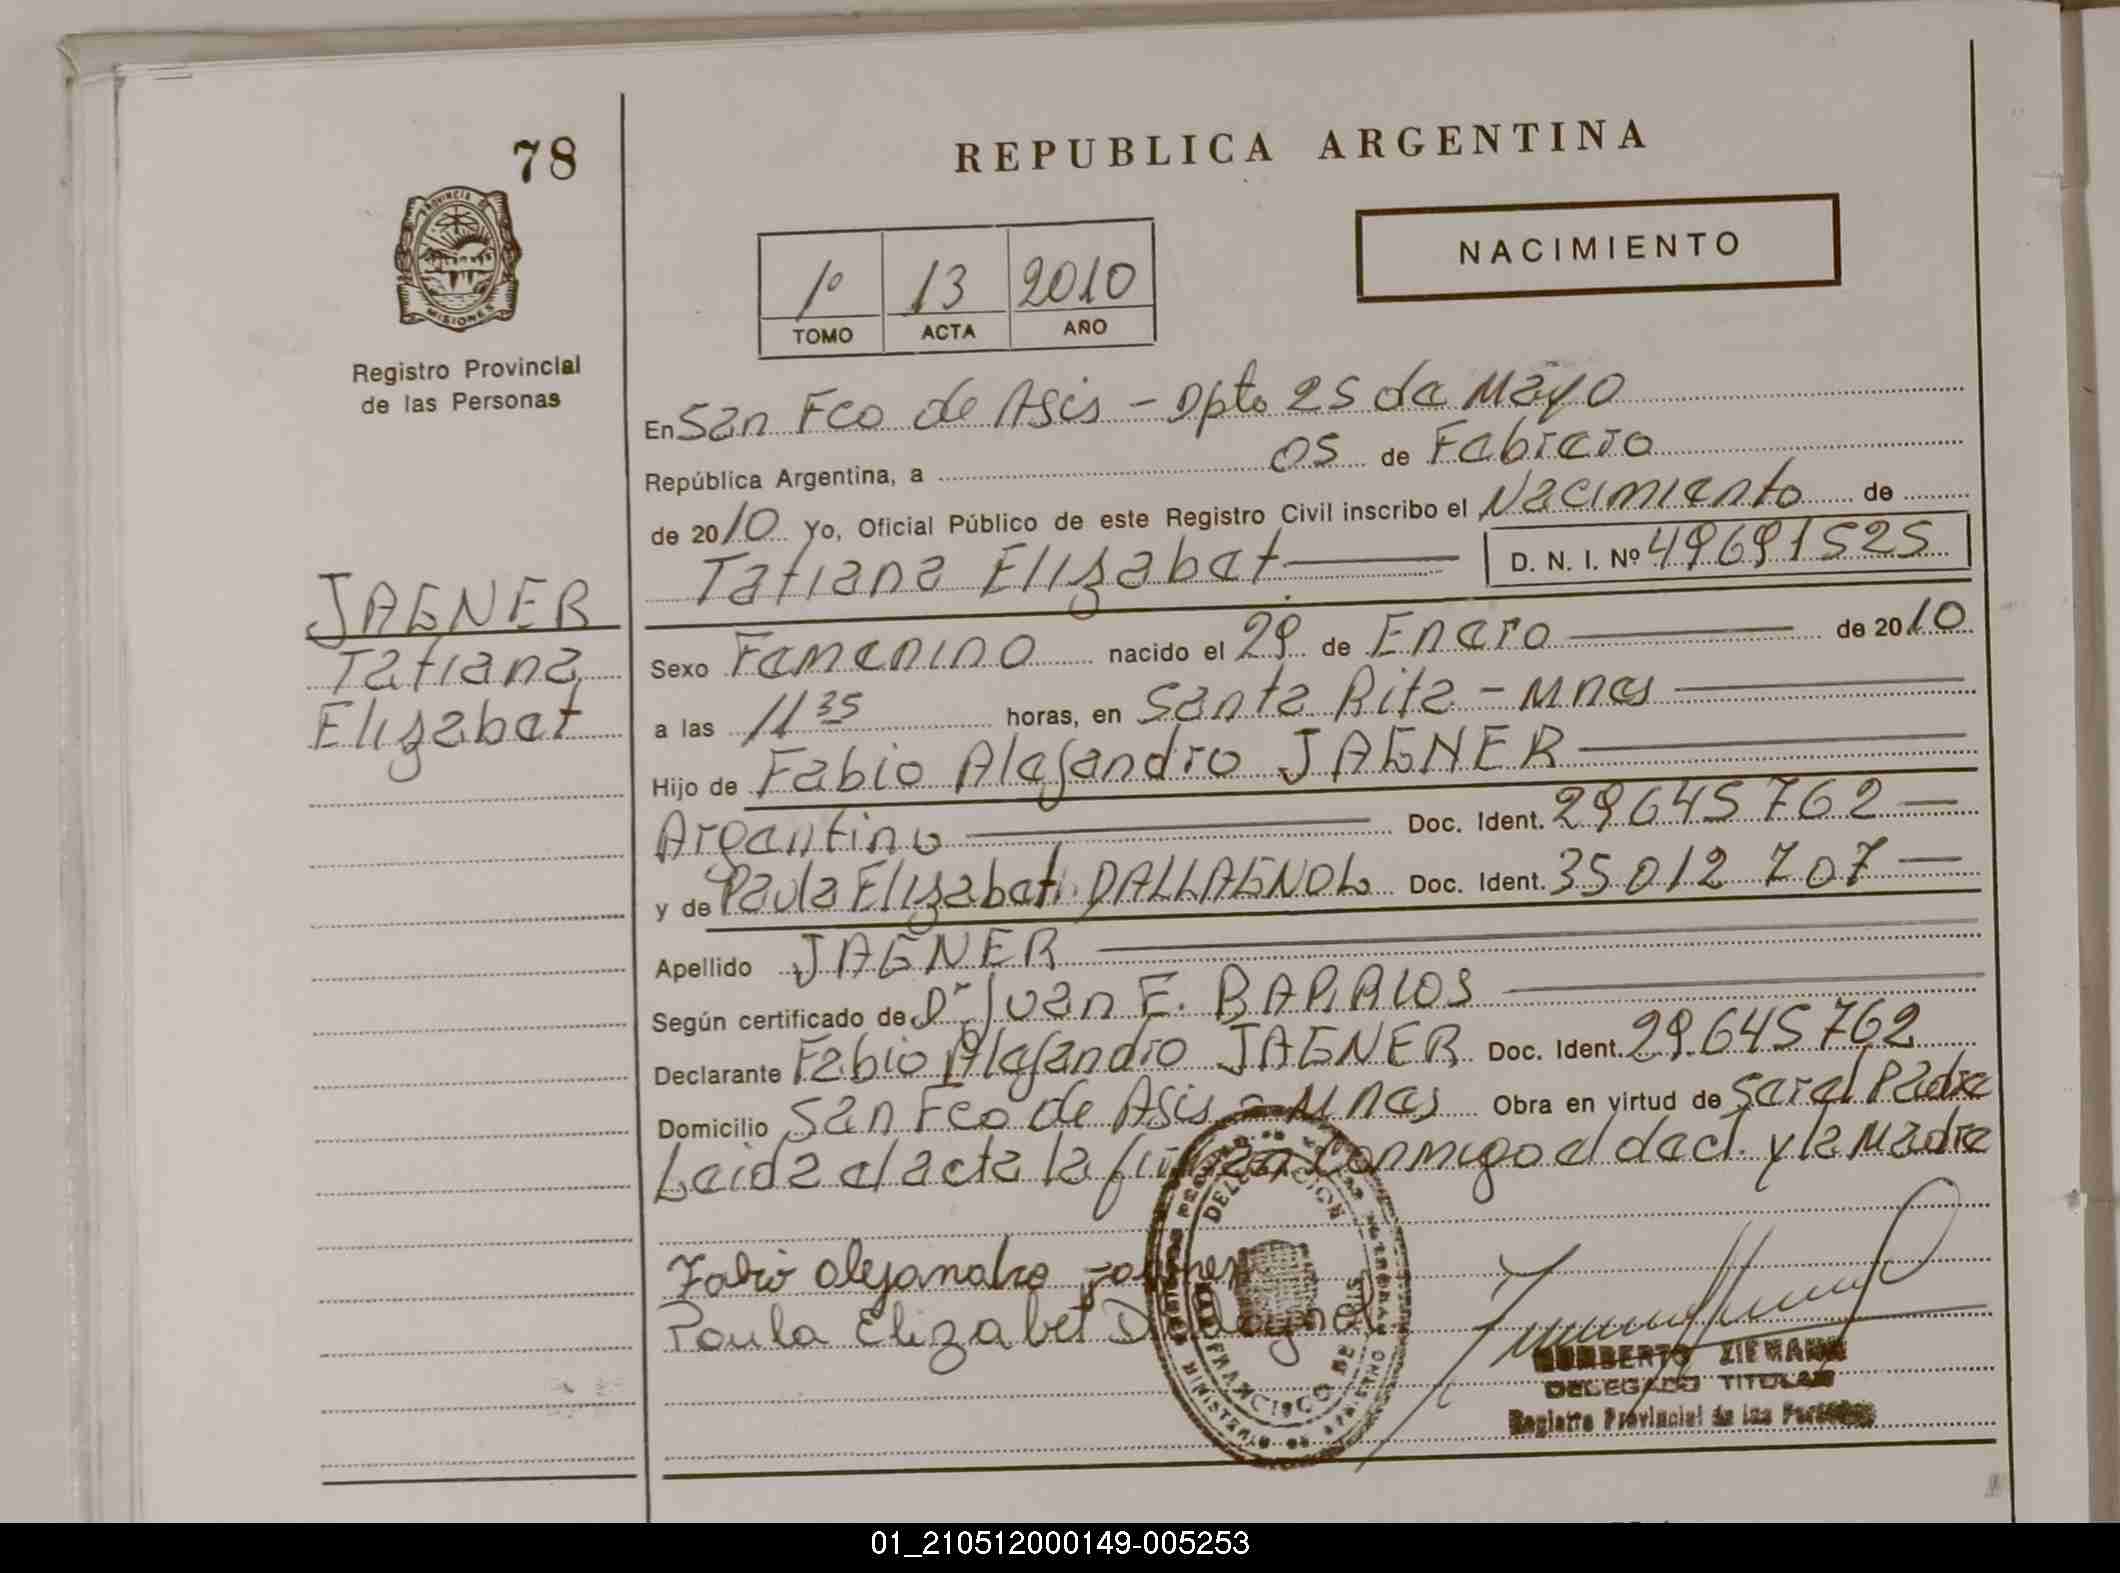 78
REPUBLICA ARGENTINA
NACIMIENTO
1º 13 2010
TOMO ACTA AÑO
PROVINCIA DE
MISIONES
Registro Provincial
de las Personas
En San Fco de Asis - Dpto 25 de Mayo
República Argentina, a 05 de Febrero
de 2010 Yo, Oficial Público de este Registro Civil inscribo el Nacimiento de
Tatiana Elizabet D. N. I. Nº 49691525
JAGNER
Tatiana
Elizabet
Sexo Femenino nacido el 29 de Enero de 2010
a las 11 35 horas, en Santa Rita - Mnes
Hijo de Fabio Alejandro JAGNER
Argentino Doc. Ident. 29645762
y de Paula Elizabet DALLAGNOL Doc. Ident. 35012707
Apellido JAGNER
Según certificado de Dr Juan E. BARRIOS
Declarante Fabio Alejandro JAGNER Doc. Ident. 29.645762
Domicilio San Fco de Asis - Mnes Obra en virtud de ser el Padre
Leida el acta la firman conmigo el decl. y la Madre
Fabio alejandro jagner
Paula Elizabet Dallagnol
DELEGACION
FRANCISCO DE ASIS
MINISTERIO DE GOBIERNO
NORBERTO ZIEMANN
DELEGADO TITULAR
Registro Provincial de las Personas
01_210512000149-005253